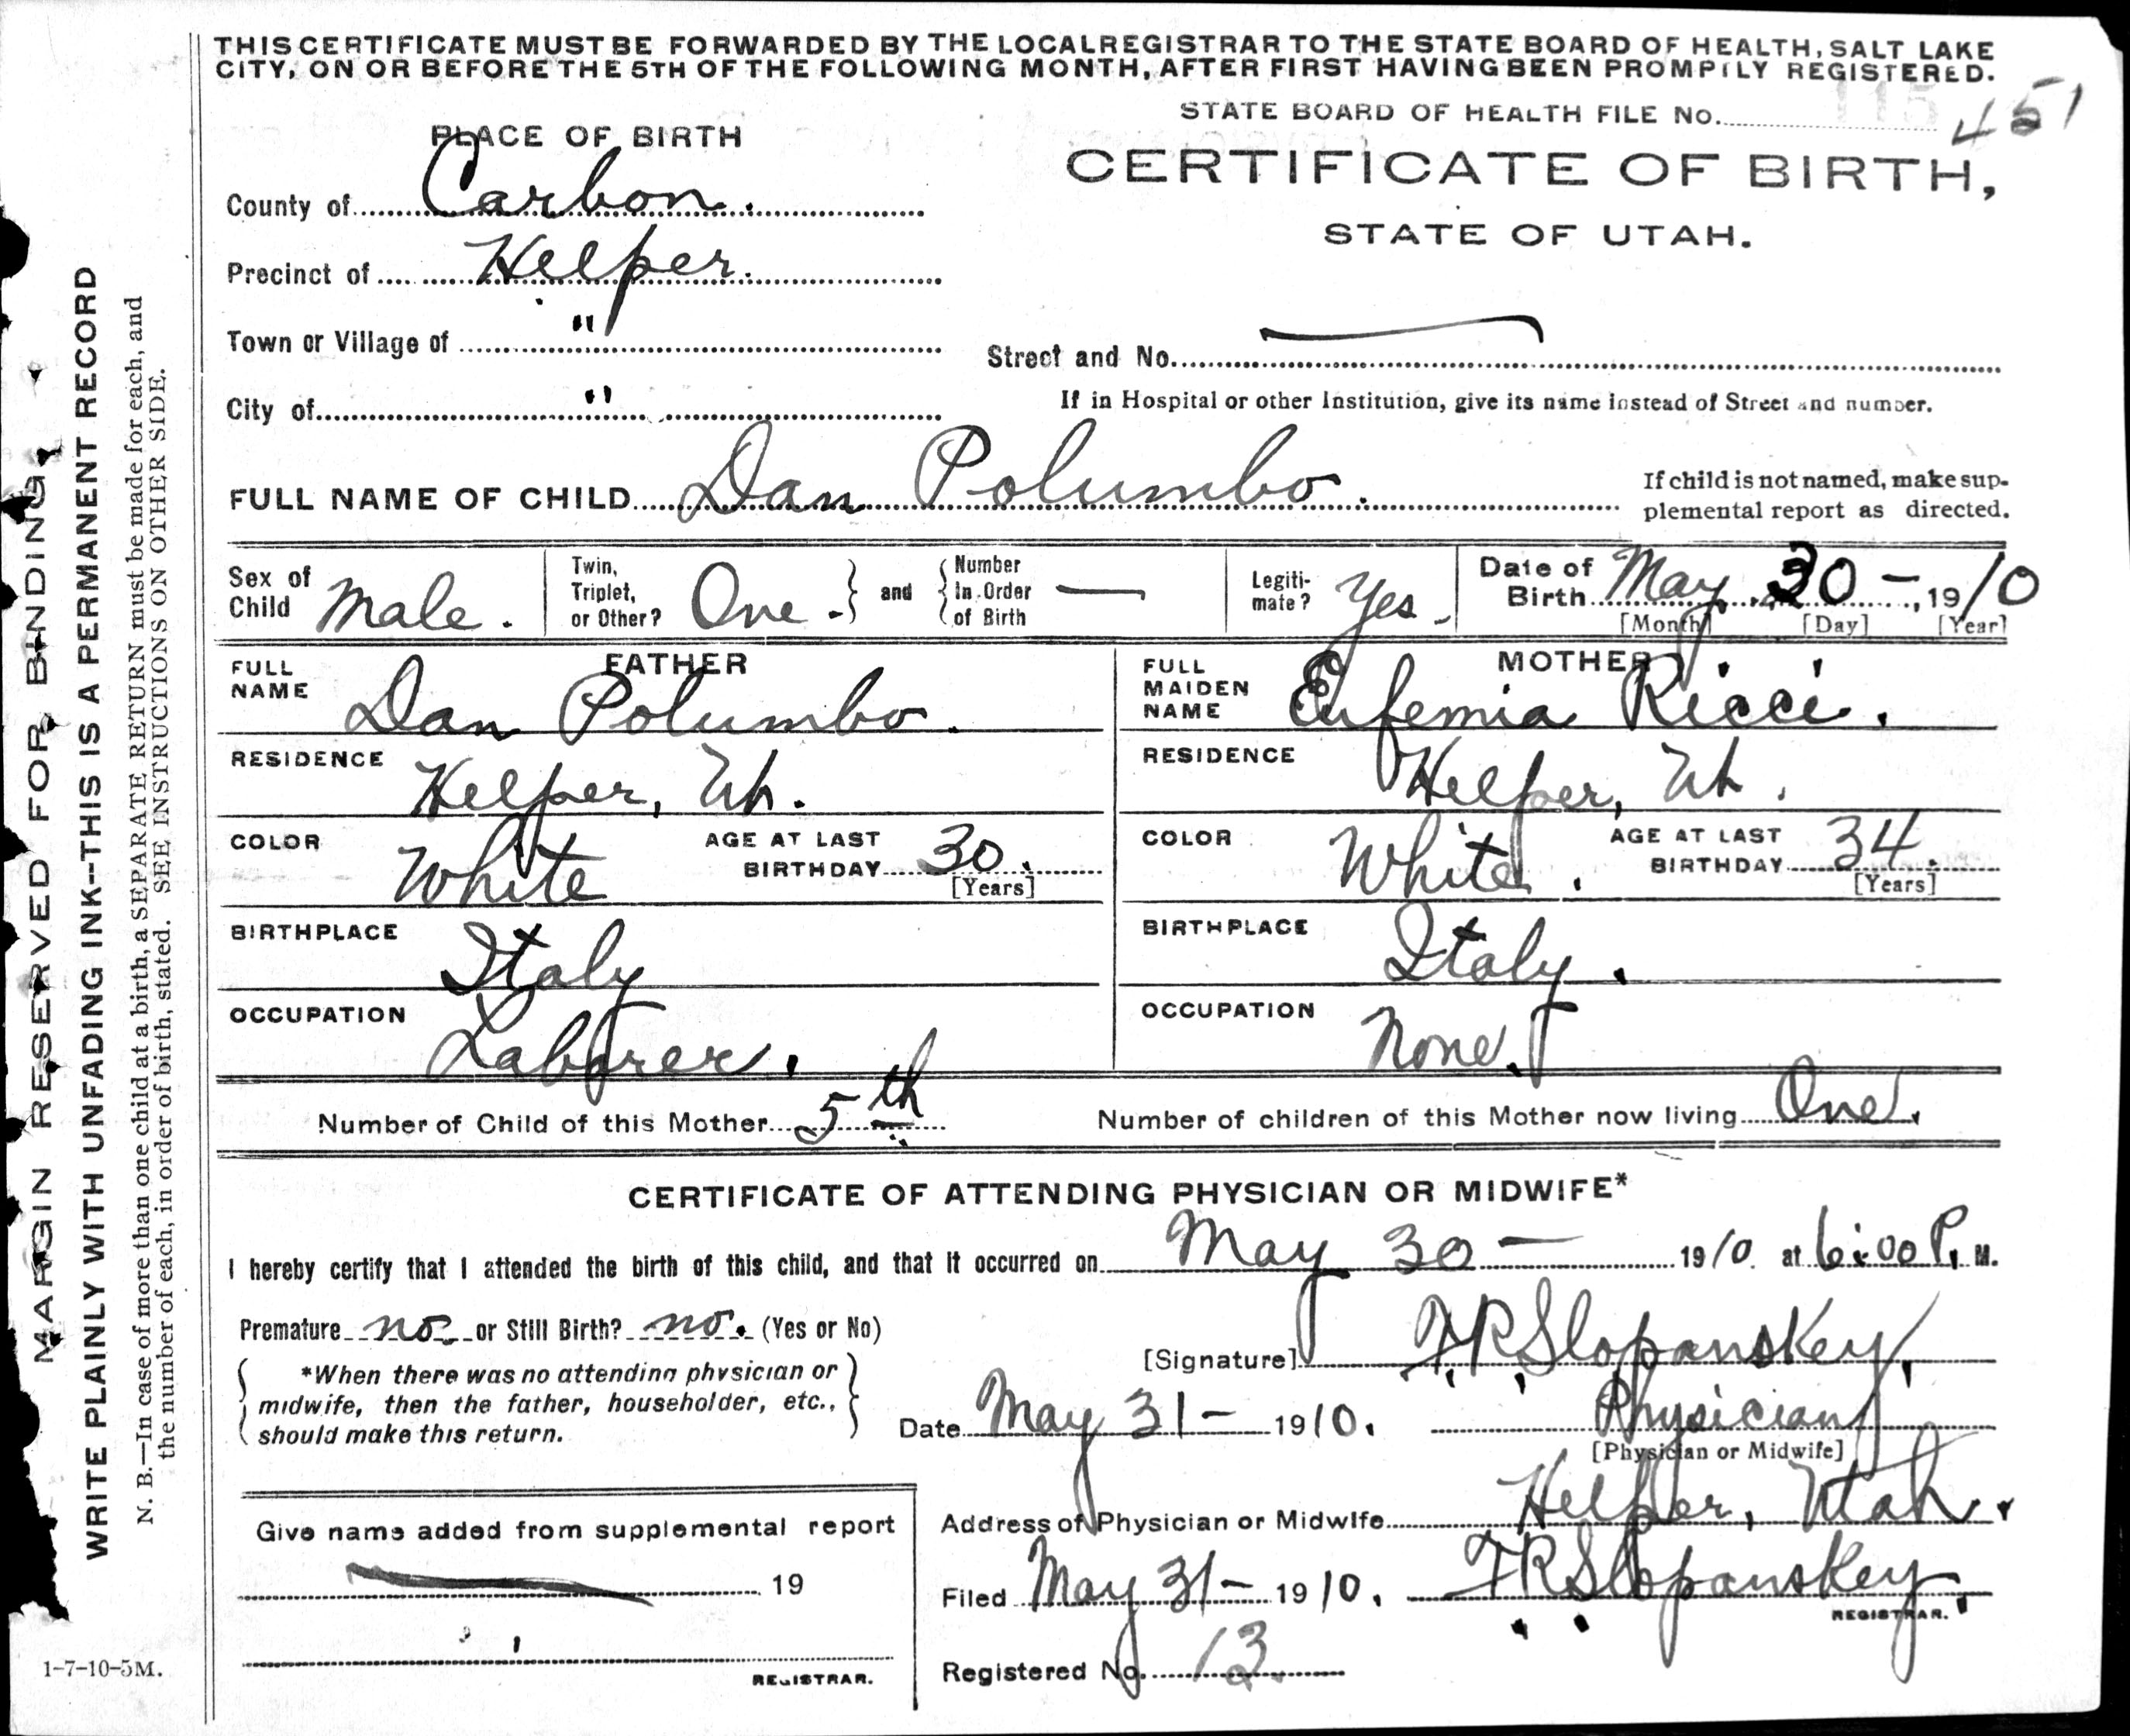 THIS CERTIFICATE MUST BE FORWARDED BY THE LOCAL REGISTRAR TO THE STATE BOARD OF HEALTH, SALT LAKE
CITY, ON OR BEFORE THE 5TH OF THE FOLLOWING MONTH, AFTER FIRST HAVING BEEN PROMPTLY REGISTERED.
STATE BOARD OF HEALTH FILE No. 115 451
PLACE OF BIRTH
CERTIFICATE OF BIRTH,
STATE OF UTAH.
County of Carbon.
Precinct of Helper.
Town or Village of "
Street and No. —
City of "
If in Hospital or other Institution, give its name instead of Street and number.
FULL NAME OF CHILD Dan Polumbo.
If child is not named, make sup-
plemental report as directed.
Sex of Child Male.
Twin, Triplet, or Other? One. and Number In Order of Birth —
Legiti-mate? Yes.
Date of Birth May 30 - , 1910
[Month] [Day] [Year]
FATHER
FULL NAME Dan Polumbo.
RESIDENCE Helper, Uh.
COLOR White AGE AT LAST BIRTHDAY 30. [Years]
BIRTHPLACE Italy
OCCUPATION Laborer.
MOTHER
FULL MAIDEN NAME Eufemia Ricci.
RESIDENCE Helper, Uh.
COLOR White. AGE AT LAST BIRTHDAY 34. [Years]
BIRTHPLACE Italy.
OCCUPATION None.
Number of Child of this Mother 5th
Number of children of this Mother now living One.
CERTIFICATE OF ATTENDING PHYSICIAN OR MIDWIFE*
I hereby certify that I attended the birth of this child, and that it occurred on May 30 — 1910. at 6:00 P. M.
Premature no or Still Birth? no. (Yes or No)
*When there was no attending physician or
midwife, then the father, householder, etc.,
should make this return.
[Signature] F R Slopanskey,
Date May 31 - 1910. Physician
[Physician or Midwife]
Address of Physician or Midwife Helper, Utah.
Filed May 31 - 1910. F R Slopanskey
REGISTRAR.
Registered No. 13
Give name added from supplemental report
19
REGISTRAR.
1-7-10-5M.
MARGIN RESERVED FOR BINDING.
WRITE PLAINLY WITH UNFADING INK--THIS IS A PERMANENT RECORD
N. B.—In case of more than one child at a birth, a SEPARATE RETURN must be made for each, and
the number of each, in order of birth, stated. SEE INSTRUCTIONS ON OTHER SIDE.